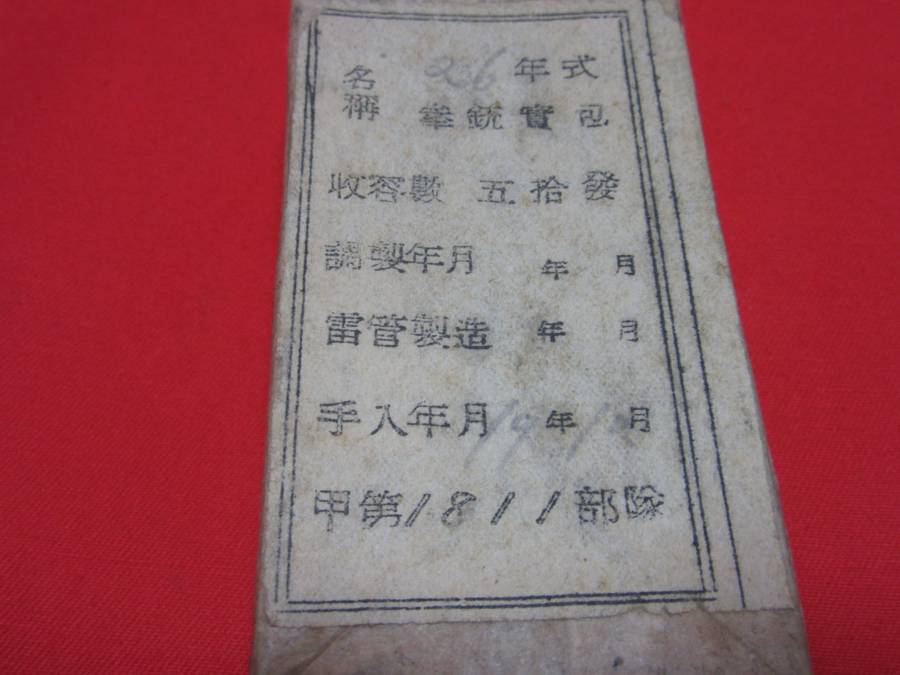 名稱 26年式
拳銃實包
收容數 五拾發
調製年月 年 月
雷管製造 年 月
手入年月 19年 1 月
甲第1811部隊